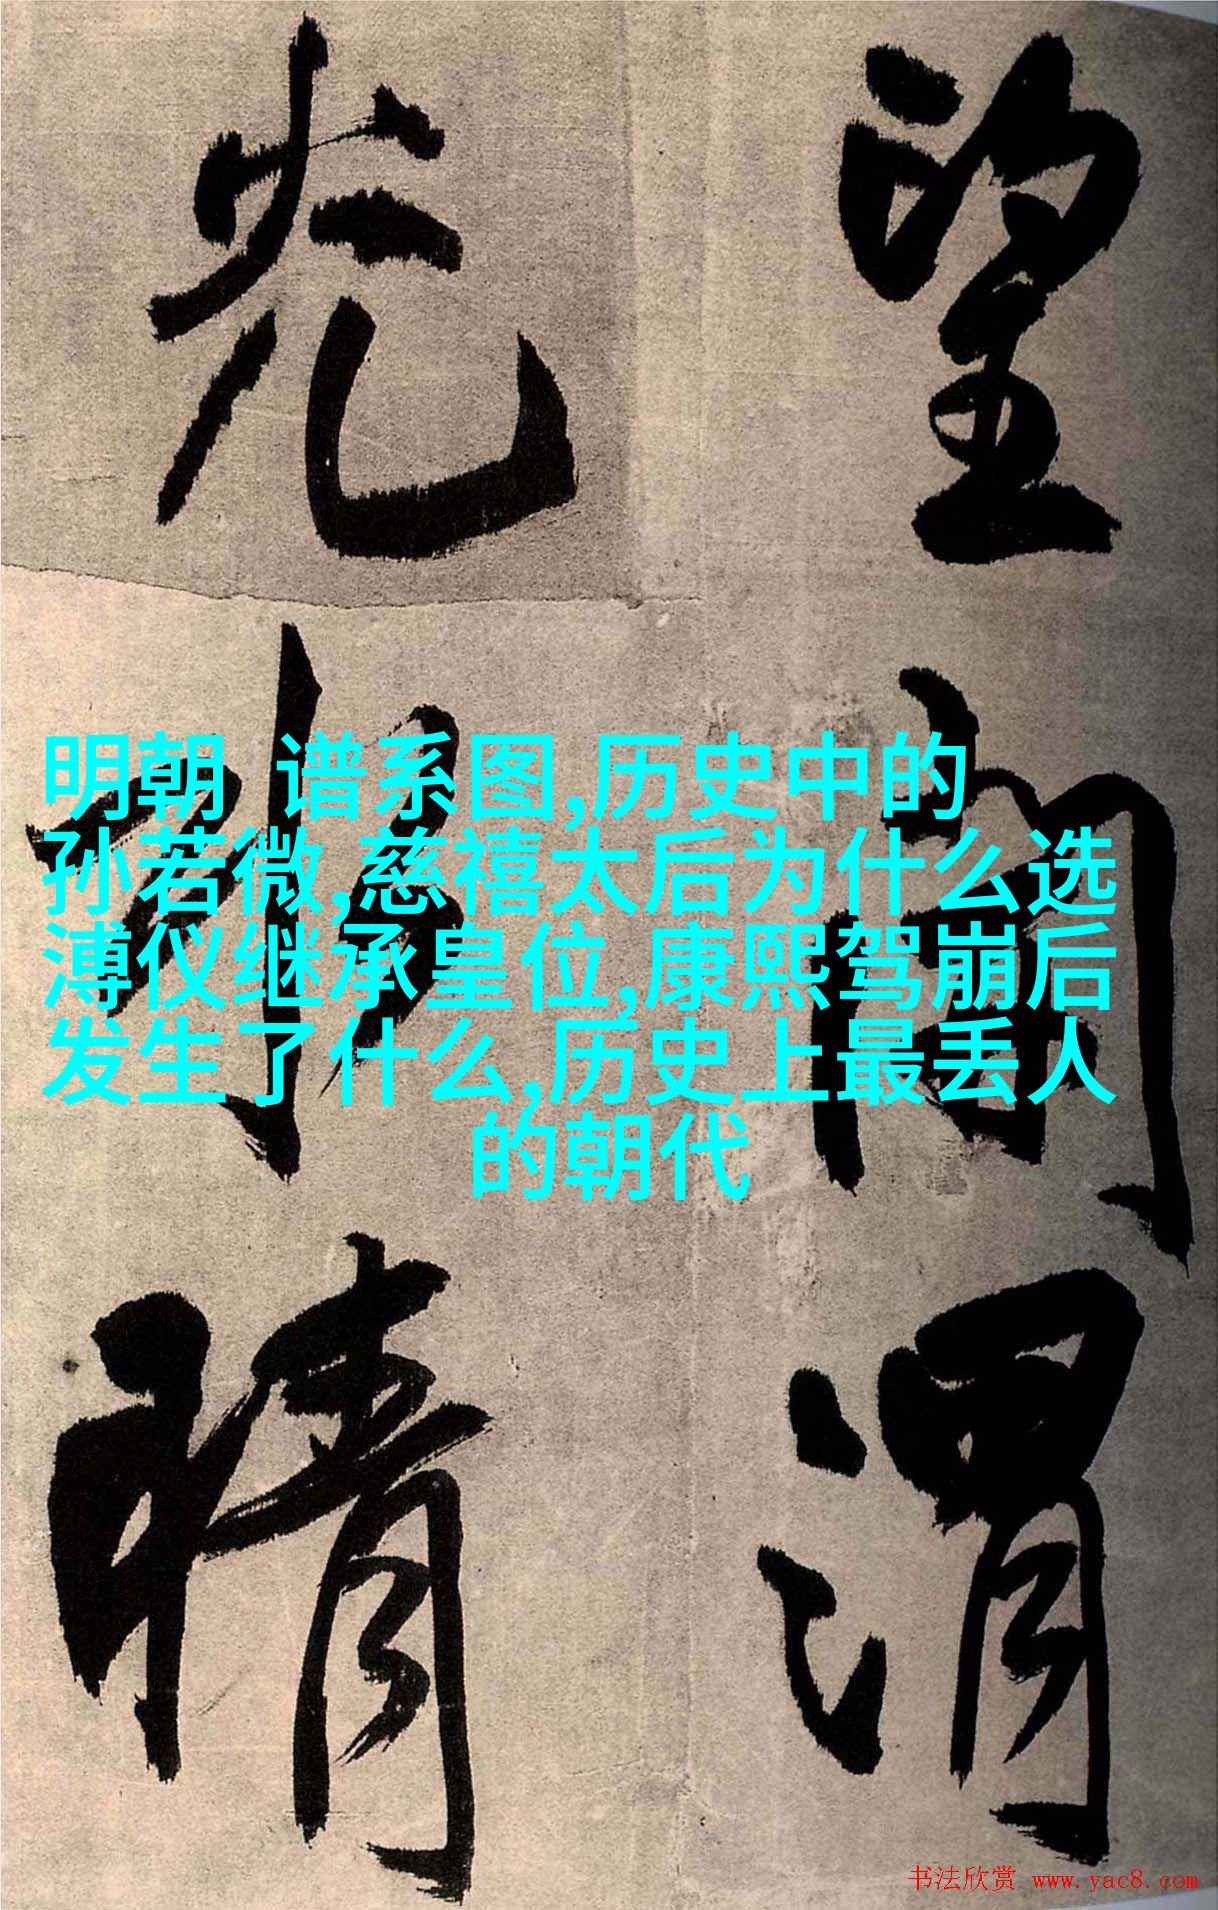 明朝 谱系图,历史中的
孙若微,慈禧太后为什么选
溥仪继承皇位,康熙驾崩后
发生了什么,历史上最丢人
的朝代
望渭
光晴
书法欣赏 www.yac8.com